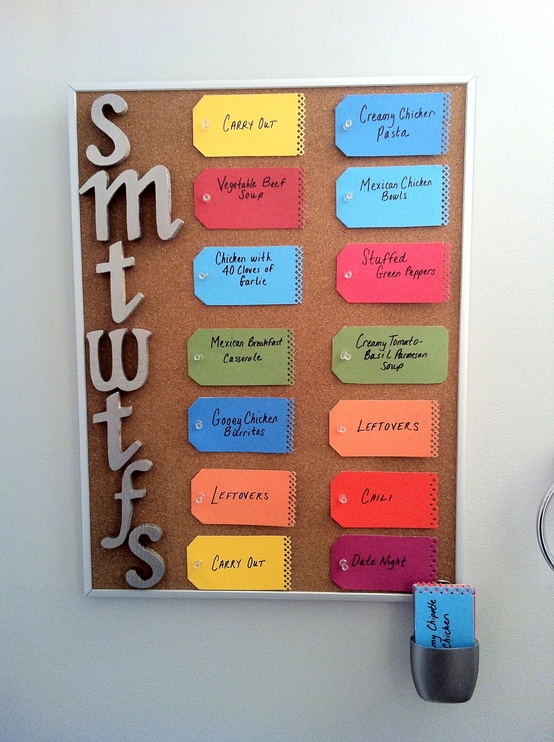 s
CARRY OUT
Creamy Chicken
Pasta
m
Vegetable Beef
Soup
Mexican Chicken
Bowls
t
Chicken with
40 Cloves of
Garlic
Stuffed
Green Peppers
w
Mexican Breakfast
Casserole
Creamy Tomato-
Basil Parmesan
Soup
t
Gooey Chicken
Burritos
LEFTOVERS
f
LEFTOVERS
CHILI
s
CARRY OUT
Date Night
Chipotle
Chicken